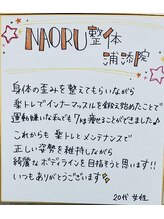 NAORU整体
浦添院
身体の歪みを整えてもらいながら
楽トレでインナーマッスルを鍛え始めたことで
運動嫌いな私でも7kg痩せることができました♪
これからも 楽トレとメンテナンスで
正しい姿勢を維持しながら
綺麗なボディラインを目指そうと思います!!
いつもありがとうございます
20代 女性